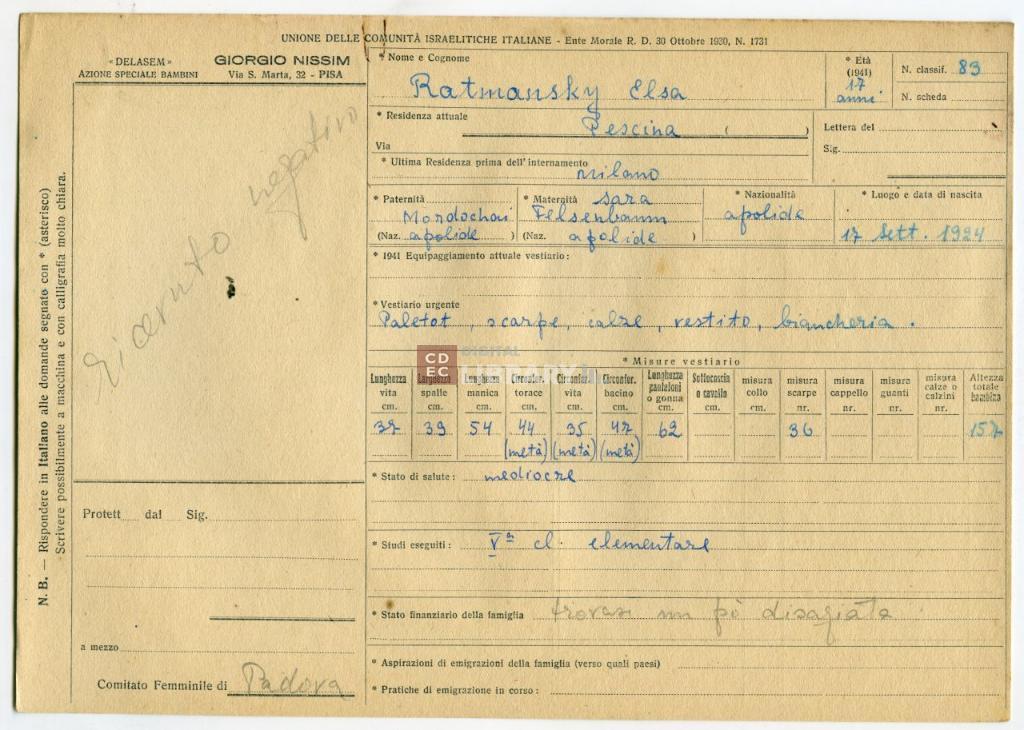 UNIONE DELLE COMUNITÀ ISRAELITICHE ITALIANE - Ente Morale R. D. 30 Ottobre 1930, N. 1731
«DELASEM»
AZIONE SPECIALE BAMBINI
GIORGIO NISSIM
Via S. Marta, 32 - PISA
* Nome e Cognome
Ratmansky Elsa
* Età
(1941)
17
anni
N. classif. 83
N. scheda
* Residenza attuale
Pescina ( )
Via
Lettera del
Sig.
* Ultima Residenza prima dell'internamento
Milano
* Paternità
Mordochai
(Naz. apolide )
* Maternità Sara
Felsenbaum
(Naz. apolide )
* Nazionalità
apolide
* Luogo e data di nascita
17 Sett. 1924
* 1941 Equipaggiamento attuale vestiario:
* Vestiario urgente
Paletot, scarpe, calze, vestito, biancheria.
CD
EC
DIGITAL
LIBRARY.it
* Misure vestiario
Lunghezza vita cm.
Larghezza spalle cm.
Lunghezza manica cm.
Circonfer. torace cm.
Circonfer. vita cm.
Circonfer. bacino cm.
Lunghezza pantaloni o gonna cm.
Sottocoscia o cavallo cm.
misura collo cm.
misura scarpe nr.
misura cappello nr.
misura guanti nr.
misura calze o calzini nr.
Altezza totale bambino
39 54 44 35 47 62 36 157
(metà) (metà) (metà)
* Stato di salute: mediocre
* Studi eseguiti: Vª cl. elementare
* Stato finanziario della famiglia trovasi un pò disagiata
* Aspirazioni di emigrazioni della famiglia (verso quali paesi)
* Pratiche di emigrazione in corso:
ricevuto negativo
Protett dal Sig.
a mezzo
Comitato Femminile di Padova
N. B. — Rispondere in Italiano alle domande segnato con * (asterisco)
Scrivere possibilmente a macchina e con calligrafia molto chiara.